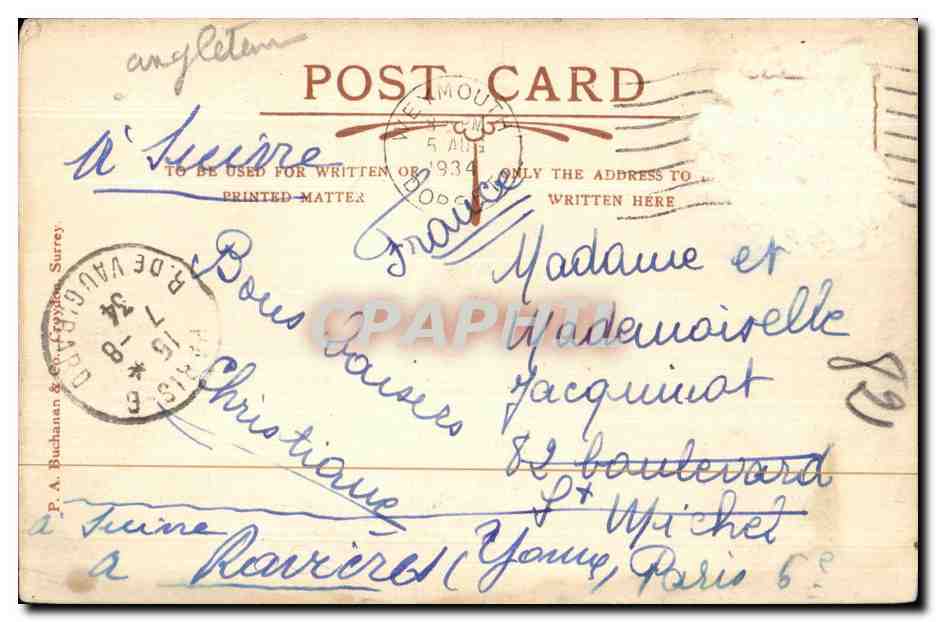 angleterre
POST CARD
à Suivre
TO BE USED FOR WRITTEN OR
PRINTED MATTER
ONLY THE ADDRESS TO
WRITTEN HERE
WEYMOUTH
5 AUG
1934
DORSET
France
P. A. Buchanan & Co., Croydon, Surrey
PARIS
R. DE VAUGIRARD
15
7 34
Bons baisers
Christiane
CPAPHIL
Madame et
Mademoiselle
Jacquinot
82 boulevard
St Michel
Paris 6e
82
à Suivre
à Ravières (Yonne)